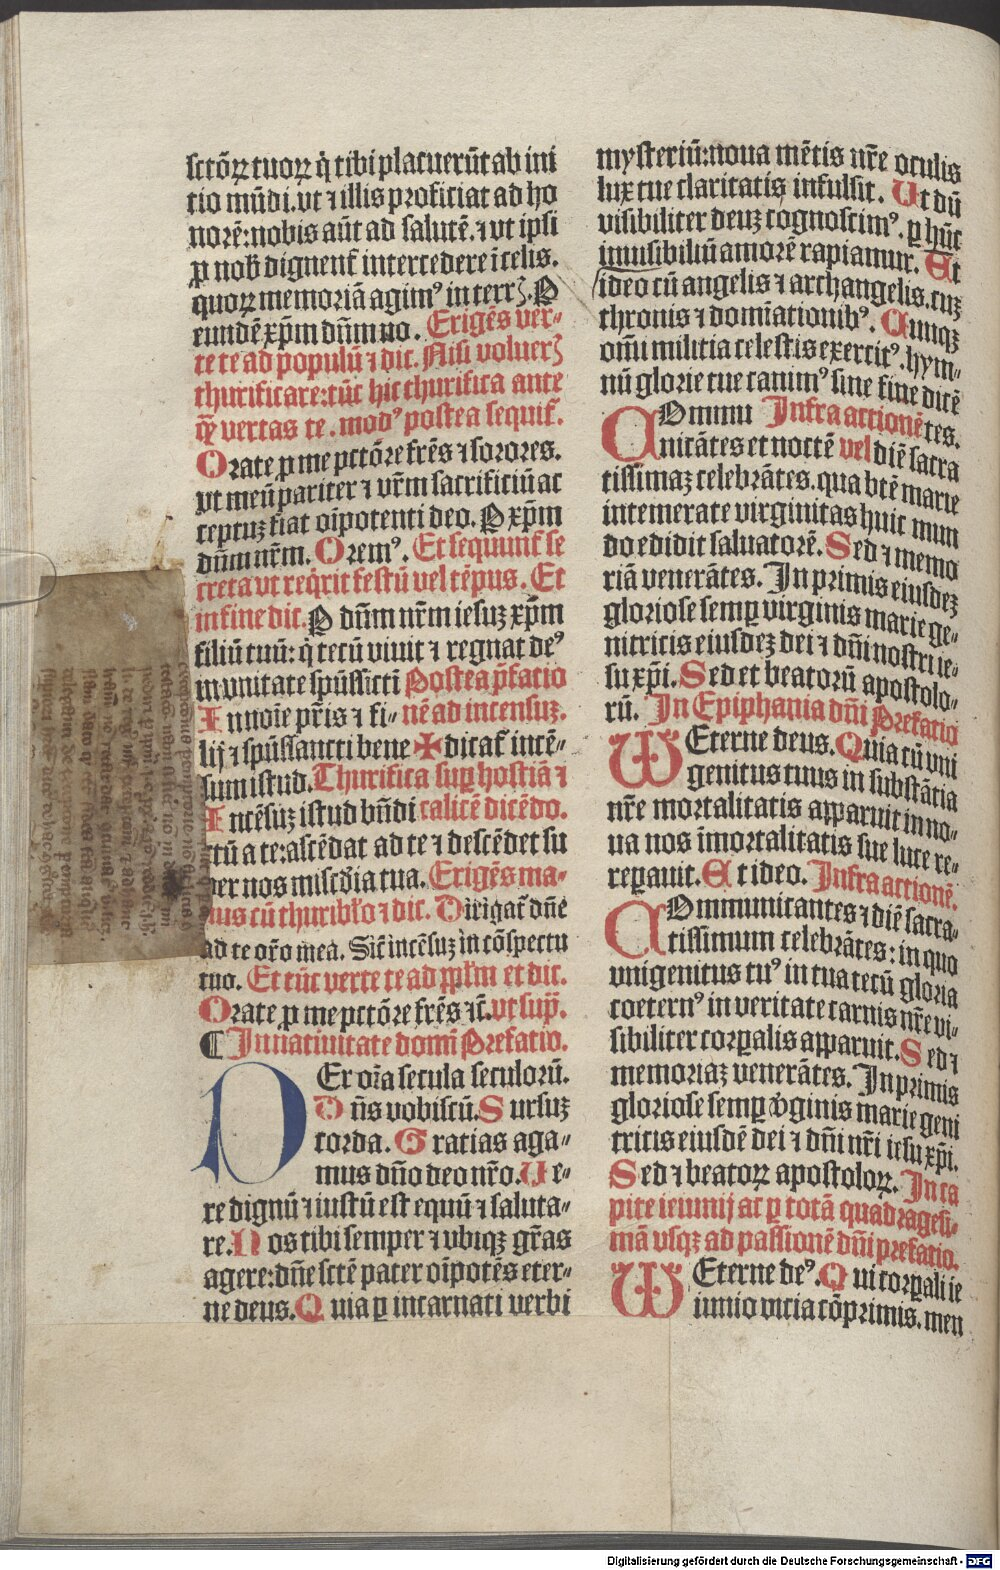 sctōꝝ tuoꝝ q̇ tibi placuerūt ab ini
tio mūdi. vt ⁊ illis proficiat ad ho
norē: nobis aūt ad salutē. ⁊ vt ipsi
ꝓ nob̄ dignent̄ intercedere ī celis.
quoꝝ memoriā agimꝰ in terrꝭ. P
eundē xp̄m dūm no. Erigēs ver-
te te ad populū ⁊ dic. Nisi volueꝝ
thurificare: tūc hic thurifica ante
q̄ȝ vertas te. modꝰ postea sequit̄.
Orate ꝓ me pctōre frēs ⁊ sorores.
vt meū pariter ⁊ vr̄m sacrificiū ac
ceptuȝ fiat oīpotenti deo. P xp̄m
dūm nr̄m. Oremꝰ. Et sequunt̄ se
creta vt req̇rit festū vel tēpus. Et
in fine dic. P dūm nr̄m iesuȝ xp̄m
filiū tuū: q̇ tecū viuit ⁊ regnat deꝰ
in vnitate spūssctī Postea p̄fatio
In noīe pr̄is ⁊ fi- nē ad incensuȝ.
lij ⁊ spūssancti bene ✠ dicat̄ incē-
sum istud. Thurifica suꝑ hostiā ⁊
Incēsuȝ istud bn̄di calicē dicēdo.
ctū a te: ascēdat ad te ⁊ descēdet su
per nos misc̄dia tua. Erigēs ma-
nus cū thuribl̄o ⁊ dic. Dirigat̄ dn̄e
ad te or̄o mea. Sic̄ incēsuȝ in cōspectu
tuo. Et tūc verte te ad ppl̄m et dic.
Orate ꝓ me pctōre frēs ⁊c̄. vt sup̄.
¶ In natiuitate domī Prefatio.
PEr oīa secula seculorū.
Dn̄s vobiscū. Sursuȝ
corda. Gratias aga-
mus dn̄o deo nr̄o. Ue-
re dignū ⁊ iustū est equū ⁊ saluta-
re. Nos tibi semper ⁊ vbiqȝ gr̄as
agere: dn̄e sctē pater oīpotēs eter-
ne deus. Quia ꝑ incarnati verbi
mysteriū: noua mētis nr̄e oculis
lux tue claritatis infulsit. Ut dū
visibiliter deuȝ cognoscimꝰ. ꝑ hūc
inuisibiliū amorē rapiamur. Et
ideo cū angelis ⁊ archangelis. cuȝ
thronis ⁊ domīationibꝰ. Cunqȝ
omī militia celestis exercitꝰ. hym-
nū glorie tue canimꝰ sine fine dicē
COmmu Infra actionē tes.
nicātes et noctē vel diē sacra
tissimaȝ celebrātes. qua btē marie
intemerate virginitas huic mun
do edidit saluatorē. Sed ⁊ memo
riā venerātes. In primis eiusdeȝ
gloriose semꝑ virginis marie ge-
nitricis eiusdeȝ dei ⁊ dn̄i nostri ie-
su xp̄i. Sed et beatorū apostolo-
rū. In Epiphania dn̄i Prefatio
UEterne deus. Quia cū vni
genitus tuus in substātia
nr̄e mortalitatis apparuit in no-
ua nos īmortalitatis sue luce re-
reꝑauit. Et ideo. Infra actionē.
COmmunicantes ⁊ diē sacra-
tissimum celebrātes: in quo
vnigenitus tuꝰ in tua tecū gloria
coeternꝰ in veritate carnis nr̄e vi-
sibiliter corꝑalis apparuit. Sed ⁊
memoriaȝ venerātes. In primis
gloriose semꝑ v̄ginis marie geni
tricis eiusdē dei ⁊ dn̄i nr̄i iesu xp̄i.
Sed ⁊ beatoꝝ apostoloꝝ. In ca
pite ieiunij ac ꝑ totā quadragesi-
mā vsqȝ ad passionē dn̄i prefatio.
UEterne deꝰ. Qui corꝑali ie
iunio vicia cōprimis. men
Digitalisierung gefördert durch die Deutsche Forschungsgemeinschaft - DFG